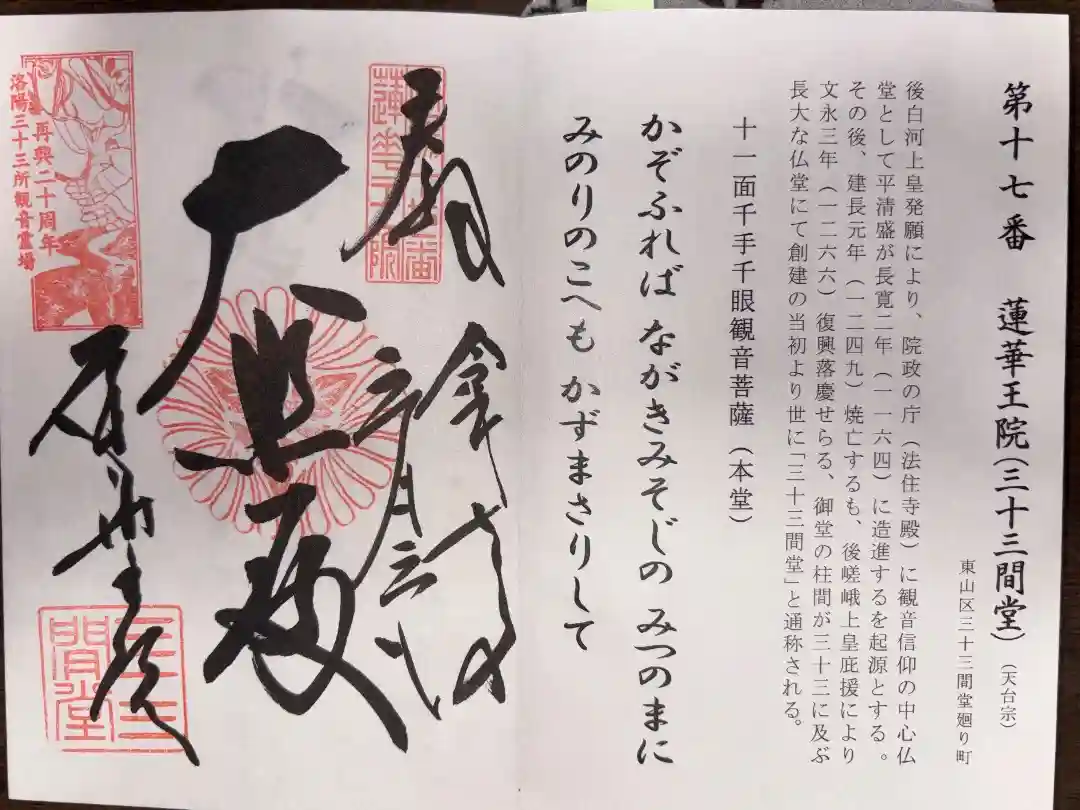 第十七番 蓮華王院(三十三間堂)(天台宗)
東山区三十三間堂廻り町
後白河上皇発願により、院政の庁(法住寺殿)に観音信仰の中心仏
堂として平清盛が長寛二年(一一六四)に造進するを起源とする。
その後、建長元年(一二四九)焼亡するも、後嵯峨上皇庇援により
文永三年(一二六六)復興落慶せらる、御堂の柱間が三十三に及ぶ
長大な仏堂にて創建の当初より世に「三十三間堂」と通称される。
十一面千手千眼観音菩薩(本堂)
かぞふれば ながきみそじの みつのまに
みのりのこへも かずまさりして
奉拝
大悲殿
蓮華王院
再興二十周年
洛陽三十三所観音霊場
三十三間堂